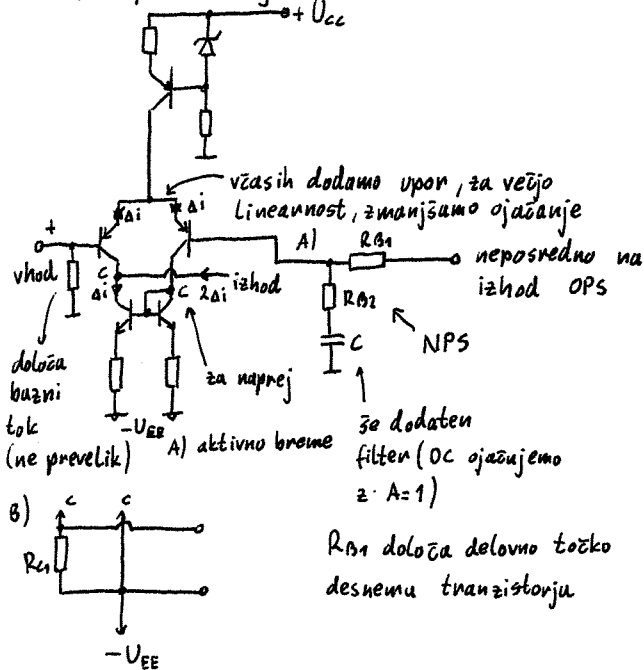 + Ucc
včasih dodamo upor, za večjo
linearnost, zmanjšamo ojačanje
Δi
Δi
+
A)
RB1
neposredno na
izhod OPS
vhod
C
izhod
Δi
C
2Δi
RB2
NPS
C
določa
bazni
tok
(ne prevelik)
za naprej
-UEE
A) aktivno breme
še dodaten
filter (DC ojačujemo
z A=1)
B)
C
C
RC1
-UEE
RB1 določa delovno točko
desnemu tranzistorju